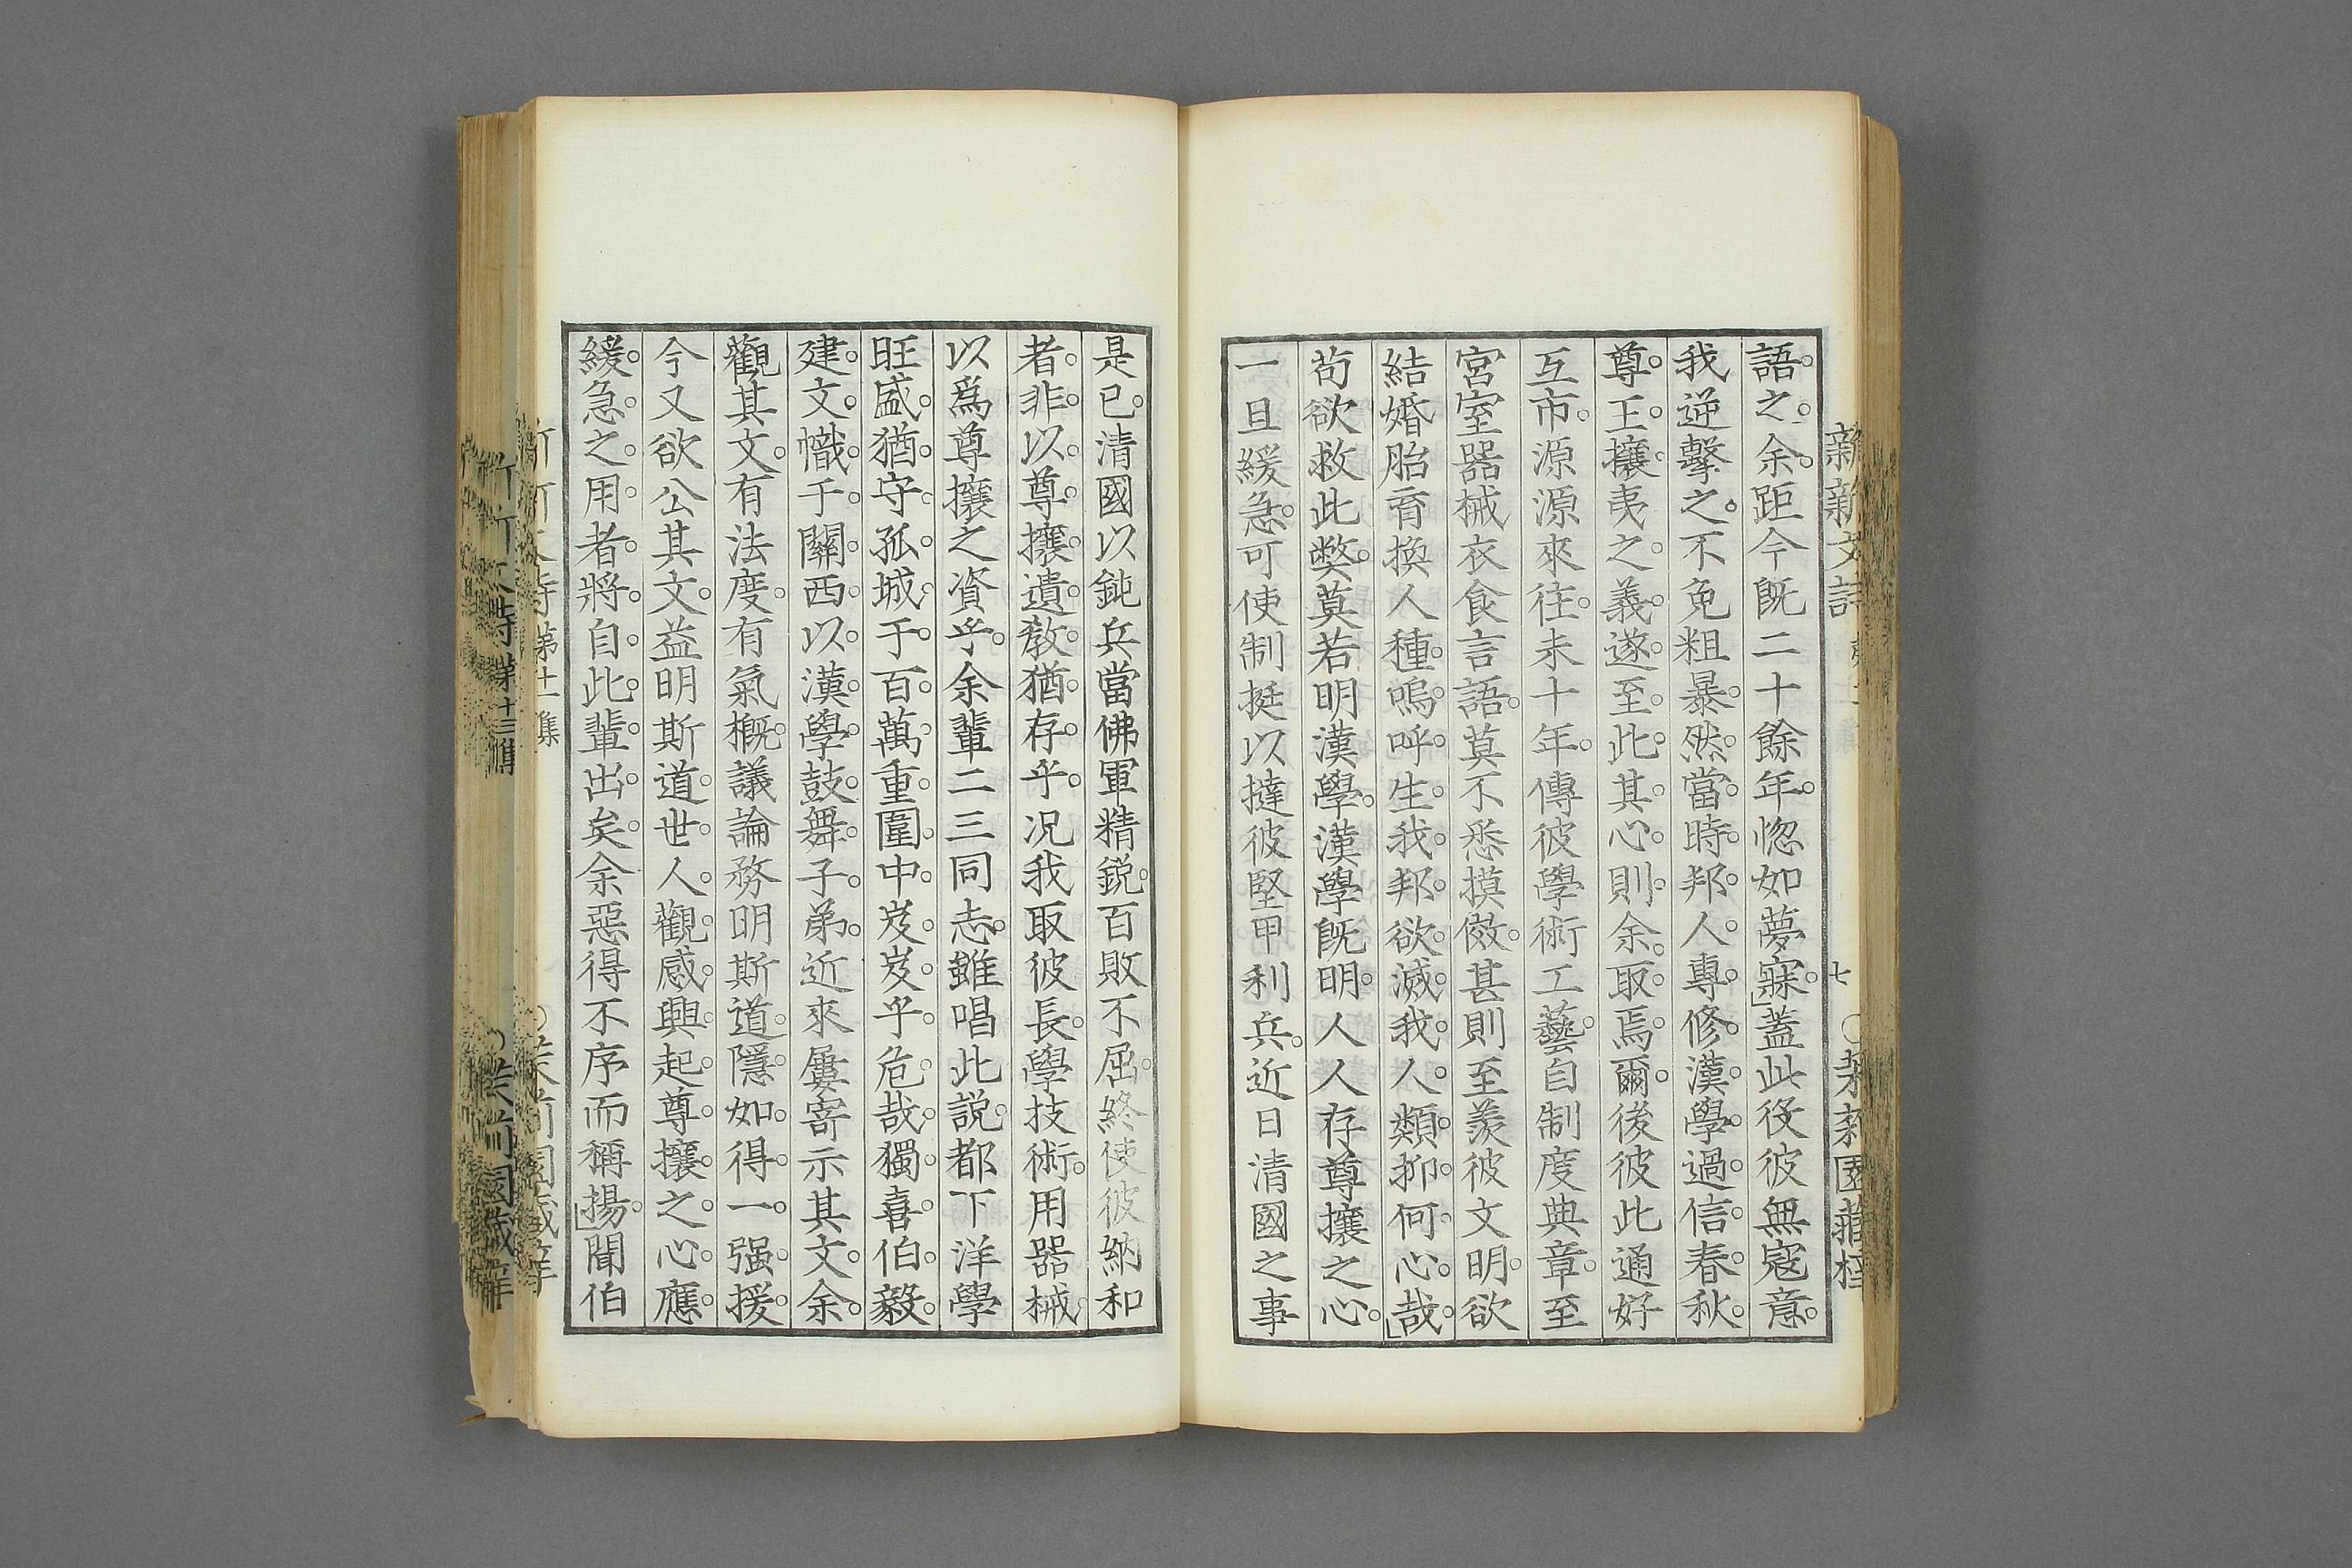 語之余距今既二十餘年惚如夢寐」蓋此役彼無寇意
我逆擊之不免粗暴然當時邦人專修漢學過信春秋
尊王攘夷之義遂至此其心則余取焉爾後彼此通好
互市源源來往未十年傳彼學術工藝自制度典章至
宮室器械衣食言語莫不悉摸倣甚則至羨彼文明欲
結婚胎育換人種嗚呼生我邦欲滅我人類抑何心哉」
苟欲救此弊莫若明漢學漢學既明人人存尊攘之心
一旦緩急可使制挺以撻彼堅甲利兵近日清國之事
是已清國以鈍兵當佛軍精銳百敗不屈終使彼納和
者非以尊攘遺教猶存乎况我取彼長學技術用器械
以爲尊攘之資乎余輩二三同志雖唱此説都下洋學
旺盛猶守孤城于百萬重圍中岌岌乎危哉獨喜伯毅
建文幟于關西以漢學鼓舞子弟近來屢寄示其文余
觀其文有法度有氣概議論務明斯道隱如得一强援
今又欲公其文益明斯道世人觀感興起尊攘之心應
緩急之用者將自此輩出矣余惡得不序而稱揚」聞伯
七
第十二集